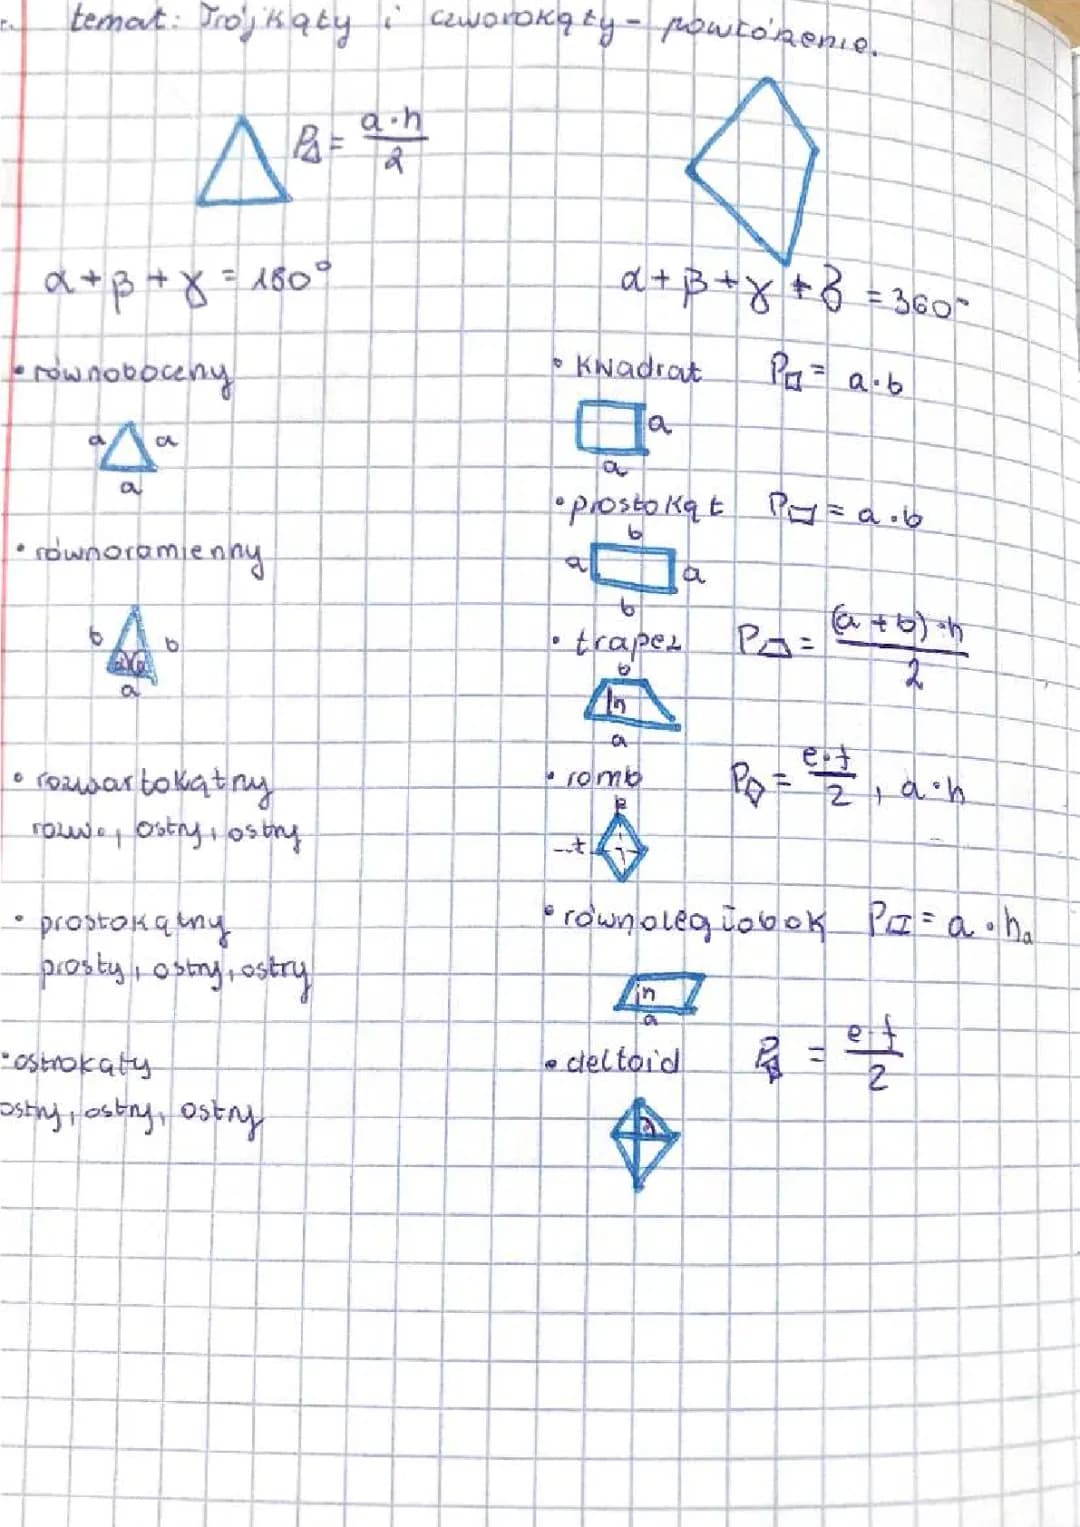 temat: Trójkąty i czworokąty - powtórzenie.
P△ = a·h/2
α + β + γ = 180°
α + β + γ + δ = 360°
• równoboczny
a a
a
• równoramienny
b b
a
• rozwartokątny
rozw., ostry, ostry
• prostokątny
prosty, ostry, ostry
• ostrokąty
ostry, ostry, ostry
• Kwadrat P□ = a·b
a
a
• prostokąt P▭ = a·b
b
a a
b
• trapez P = (a + b)·h/2
b
h
a
• romb P = e·f/2, a·h
e
f
• równoległobok P▱ = a·ha
h
a
• deltoid P = e·f/2